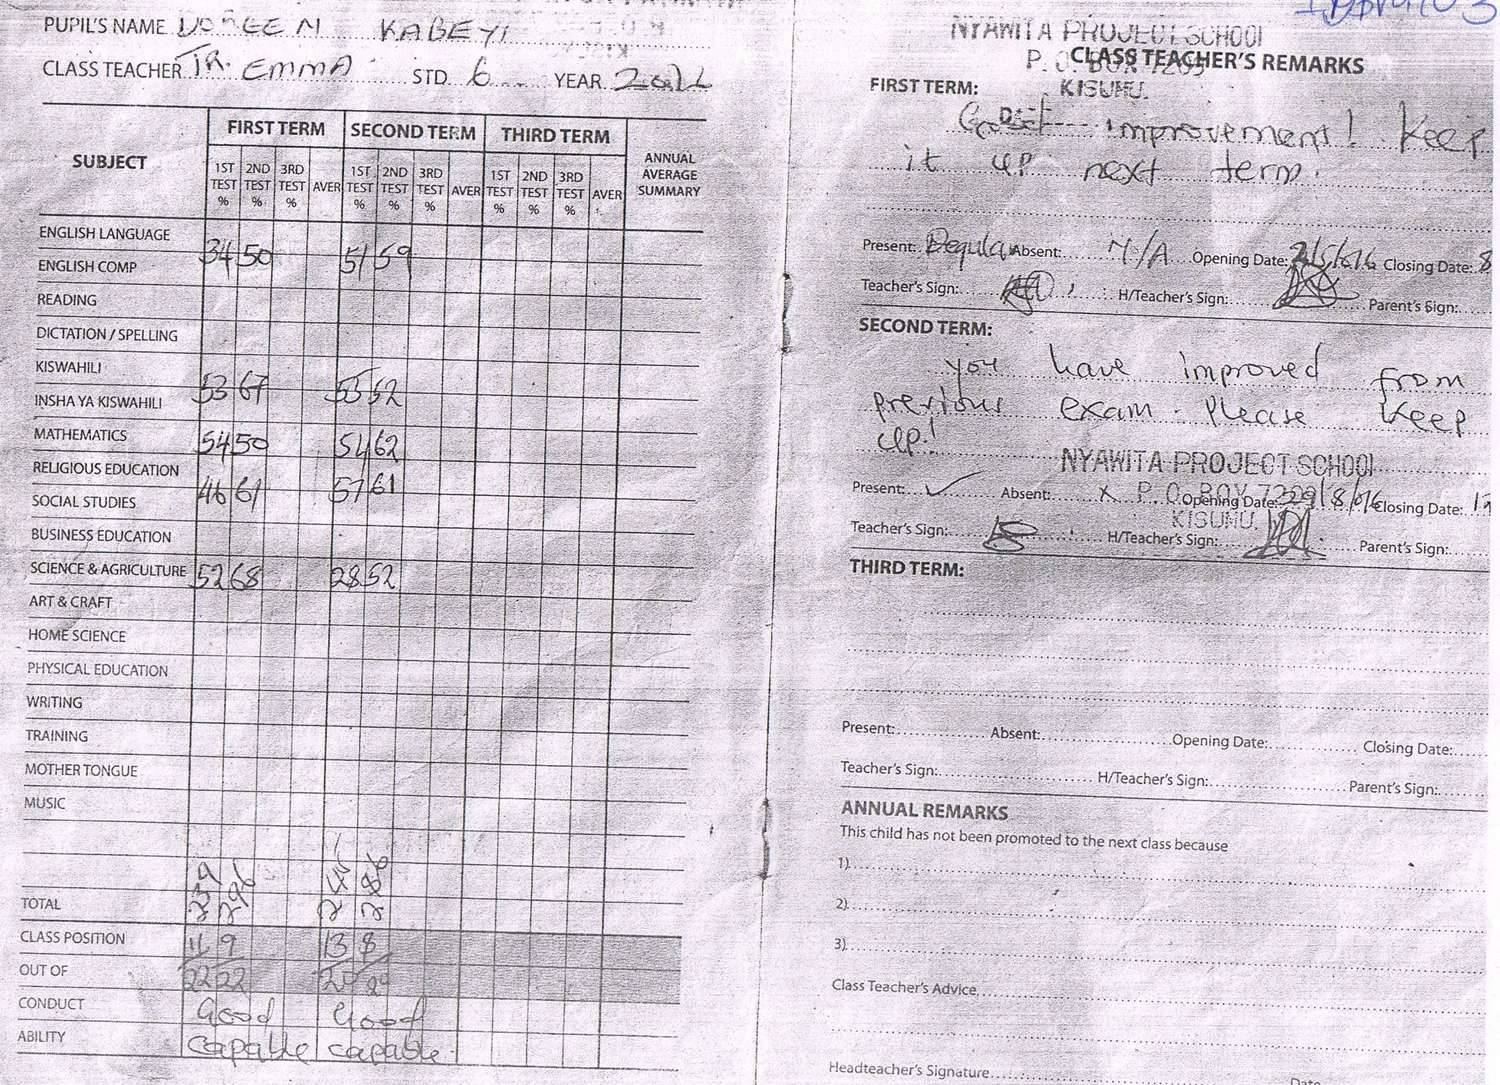 PUPIL'S NAME DOREEN KABEYI
CLASS TEACHER TR. EMMA STD. 6 YEAR
SUBJECT FIRST TERM SECOND TERM THIRD TERM ANNUAL AVERAGE SUMMARY
1ST TEST % 2ND TEST % 3RD TEST % AVER 1ST TEST % 2ND TEST % 3RD TEST % AVER 1ST TEST % 2ND TEST % 3RD TEST % AVER
ENGLISH LANGUAGE
34 50 51 59
ENGLISH COMP
READING
DICTATION / SPELLING
KISWAHILI
53 67 55 52
INSHA YA KISWAHILI
MATHEMATICS 54 50 54 62
RELIGIOUS EDUCATION
46 61 57 61
SOCIAL STUDIES
BUSINESS EDUCATION
SCIENCE & AGRICULTURE 52 68 28 52
ART & CRAFT
HOME SCIENCE
PHYSICAL EDUCATION
WRITING
TRAINING
MOTHER TONGUE
MUSIC
TOTAL 239 296 286
CLASS POSITION 9 13 8
OUT OF 22 22 20
CONDUCT Good Good
ABILITY capable capable
NYAWITA PROJECT SCHOOL
P. O. BOX 7209
KISUMU.
CLASS TEACHER'S REMARKS
FIRST TERM:
improvement! Keep
it up next term.
Present: Regular Absent: N/A Opening Date: Closing Date: 8
Teacher's Sign: H/Teacher's Sign: Parent's Sign:
SECOND TERM:
you have improved from
previous exam. Please keep
up!
NYAWITA PROJECT SCHOOL
P. O. BOX 7209
KISUMU.
Present: ✓ Absent: x Opening Date: 29/8/016 Closing Date:
Teacher's Sign: H/Teacher's Sign: Parent's Sign:
THIRD TERM:
Present: Absent: Opening Date: Closing Date:
Teacher's Sign: H/Teacher's Sign: Parent's Sign:
ANNUAL REMARKS
This child has not been promoted to the next class because
1)
2)
3)
Class Teacher's Advice
Headteacher's Signature Date